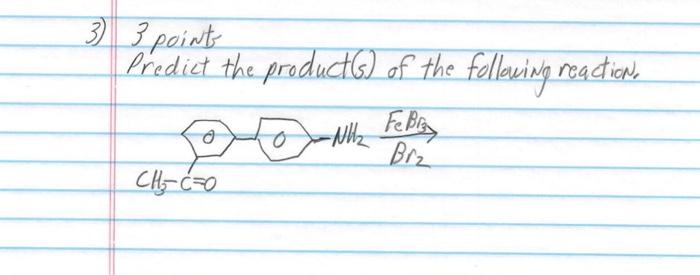 3) 3 points
Predict the product(s) of the following reaction.
-NH2 FeBr3
Br2
CH3-C=O